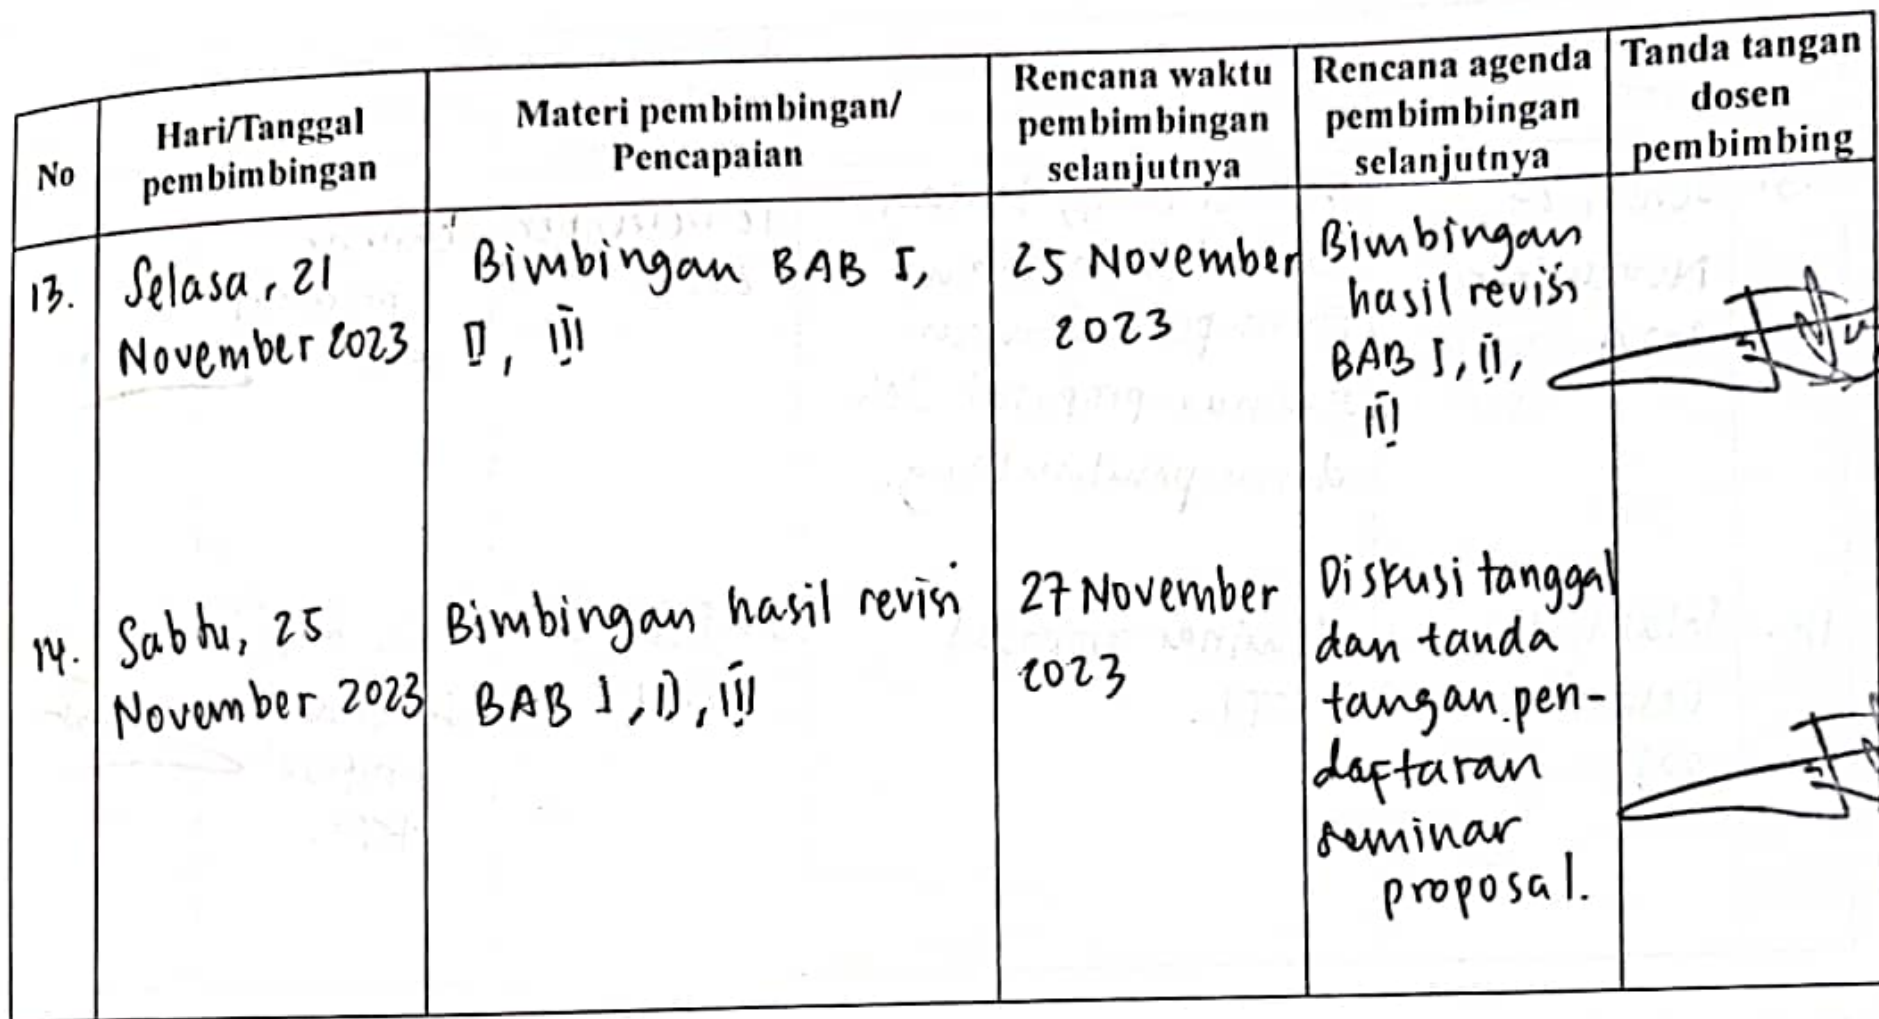 No
Hari/Tanggal
pembimbingan
Materi pembimbingan/
Pencapaian
Rencana waktu
pembimbingan
selanjutnya
Rencana agenda
pembimbingan
selanjutnya
Tanda tangan
dosen
pembimbing
13.
Selasa, 21
November 2023
Bimbingan BAB I,
II, III
25 November
2023
Bimbingan
hasil revisi
BAB I, II,
III
14.
Sabtu, 25
November 2023
Bimbingan hasil revisi
BAB I, II, III
27 November
2023
Diskusi tanggal
dan tanda
tangan pen-
daftaran
seminar
proposal.